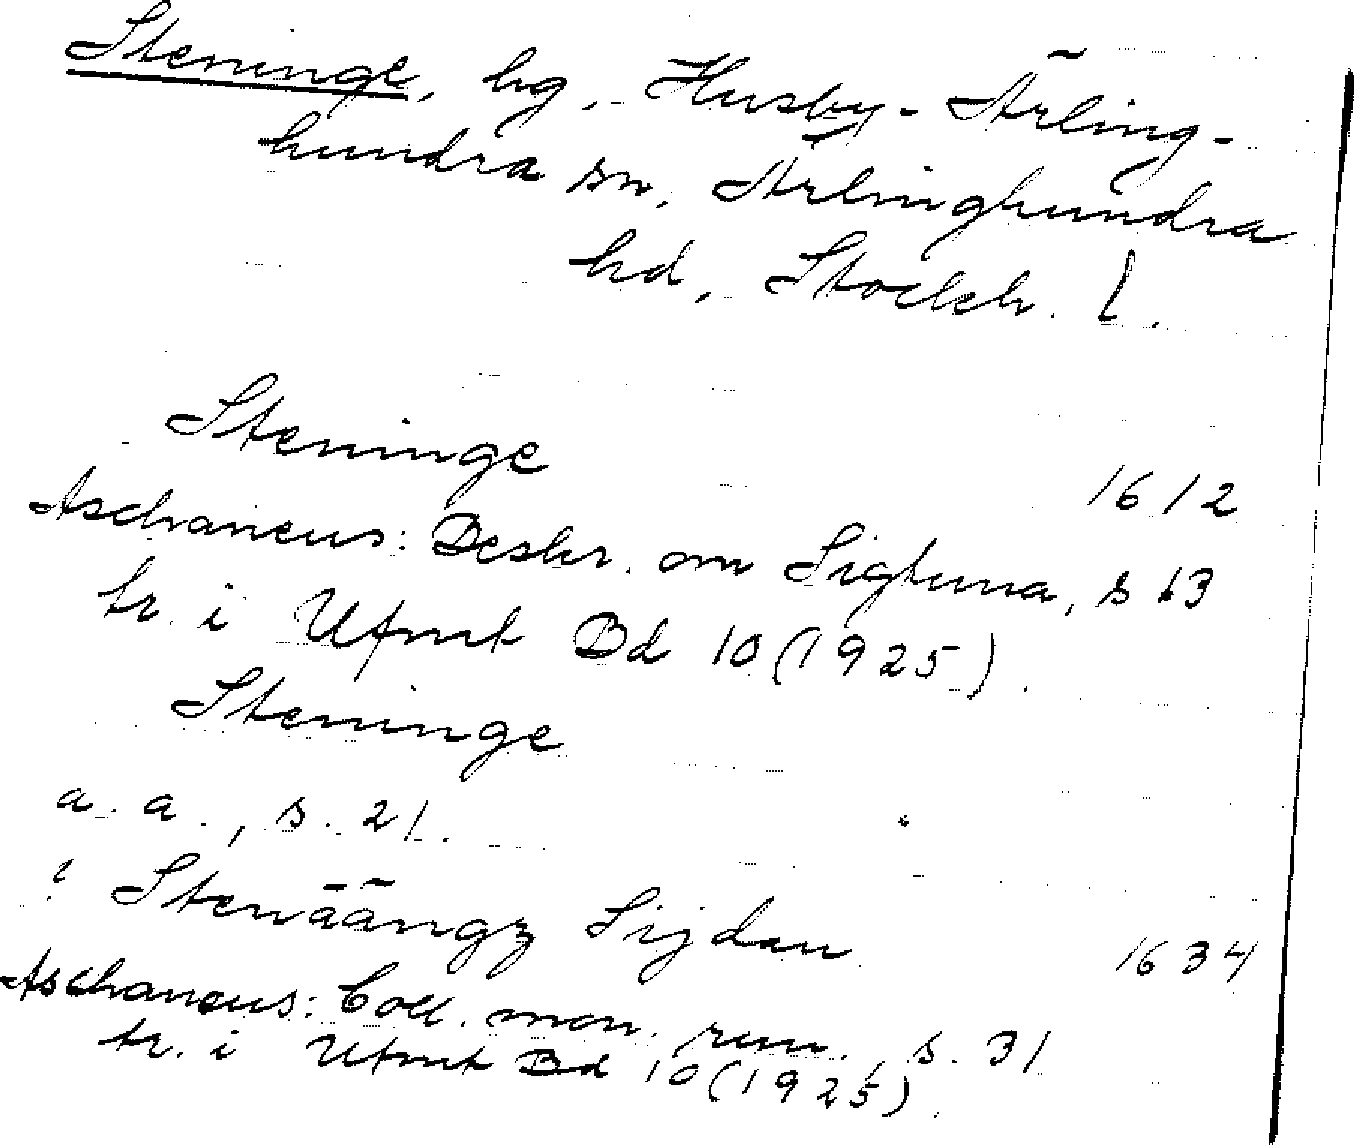 Steninge, hg, Husby-Ärling-
hundra sn, Ärlinghundra
hd, Stockh. l.
Steninge 1612
Aschaneus: Beskr. om Sigtuna, s 13
tr. i Ufmt Bd 10 (1925).
Steninge
a. a., s. 21.
i Stenäängz Sijdan 1634
Aschaneus: Coll. mon. run., s. 31
tr. i Ufmt Bd 10 (1925).